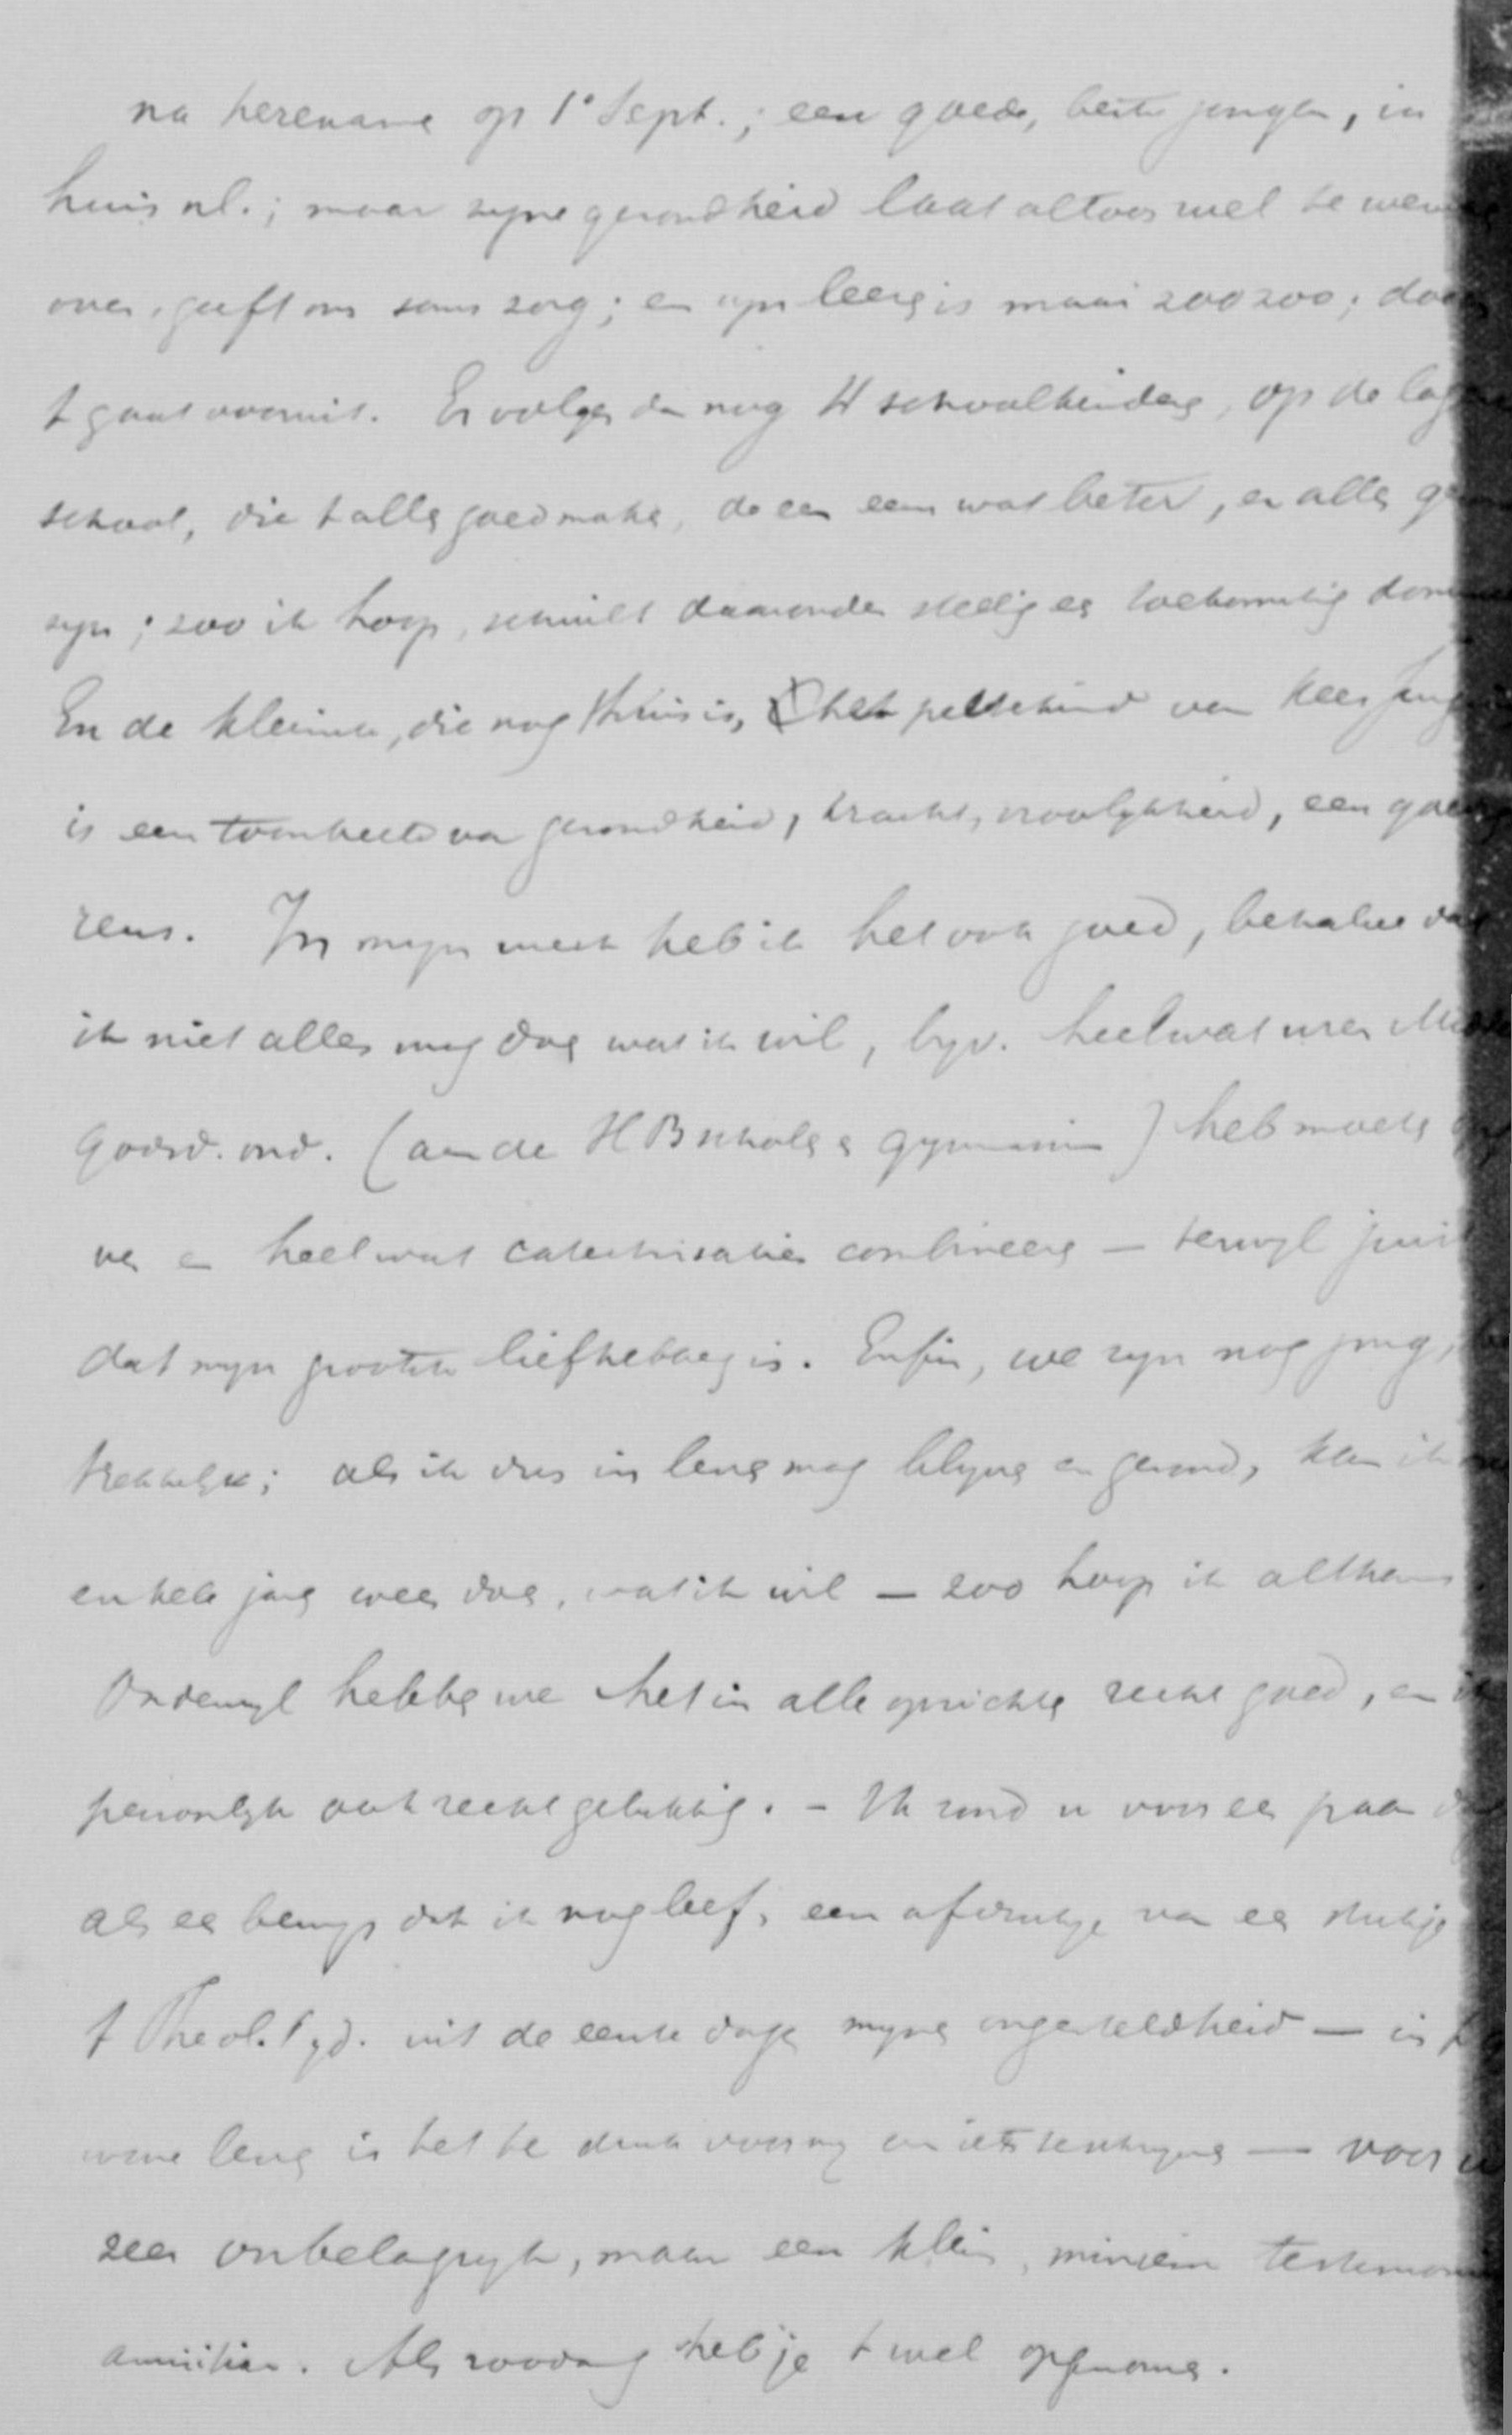 na herexame op 1e Sept.; een goede, beste jongen, in
huis nl.; maar zyne gezondheid laat altoos wel te wen
over, geeft ons soms zorg; en zyn leeren is maar zoozoo; doch
t gaat vooruit. Er volgen dan nog 4 schoolkinderen, op de lag
school, die t allen goed maken, de een een wat beter, en allen ge
zyn; zoo ik hoop, schuilt daaronder stellig een toekomstig dom
En de kleinen, die nog thuis is, het petekind van Kees Jung
is een toonbeeld van gezondheid, kracht, vroolykheid, een goede
reus. In myn werk heb ik het ook goed, behalve dat
ik niet alles mag doen wat ik wil, byv. heel wat uren Mid
Godsd. ond. (aan de HBscholen en gymnasium) heb moeten op
ven en heel wat catechisaties combineeren — terwyl juist
dat myn grootste liefhebberij is. Enfin, we zyn nog jong,
trekkelyk; als ik dus in leven mag blyven en gezond, kan ik
enkele jaren weer doen, wat ik wil — zoo hoop ik althans
Onderwyl hebben we het in alle opzichten recht goed, en ik
persoonlyk ook recht gelukkig. – Ik zond u voor een paar d
als een bewys dat ik nog leef, een afdrukje van een stukje
t Theol. Tyd. uit de eerste dagen myner ongesteldheid — in t
wone leven is het te druk voor my om iets te schryven — voor u
zeer onbelangryk, maar een klein, miniem testimon
amicitiae. Als zoodanig heb je t wel opgenomen.